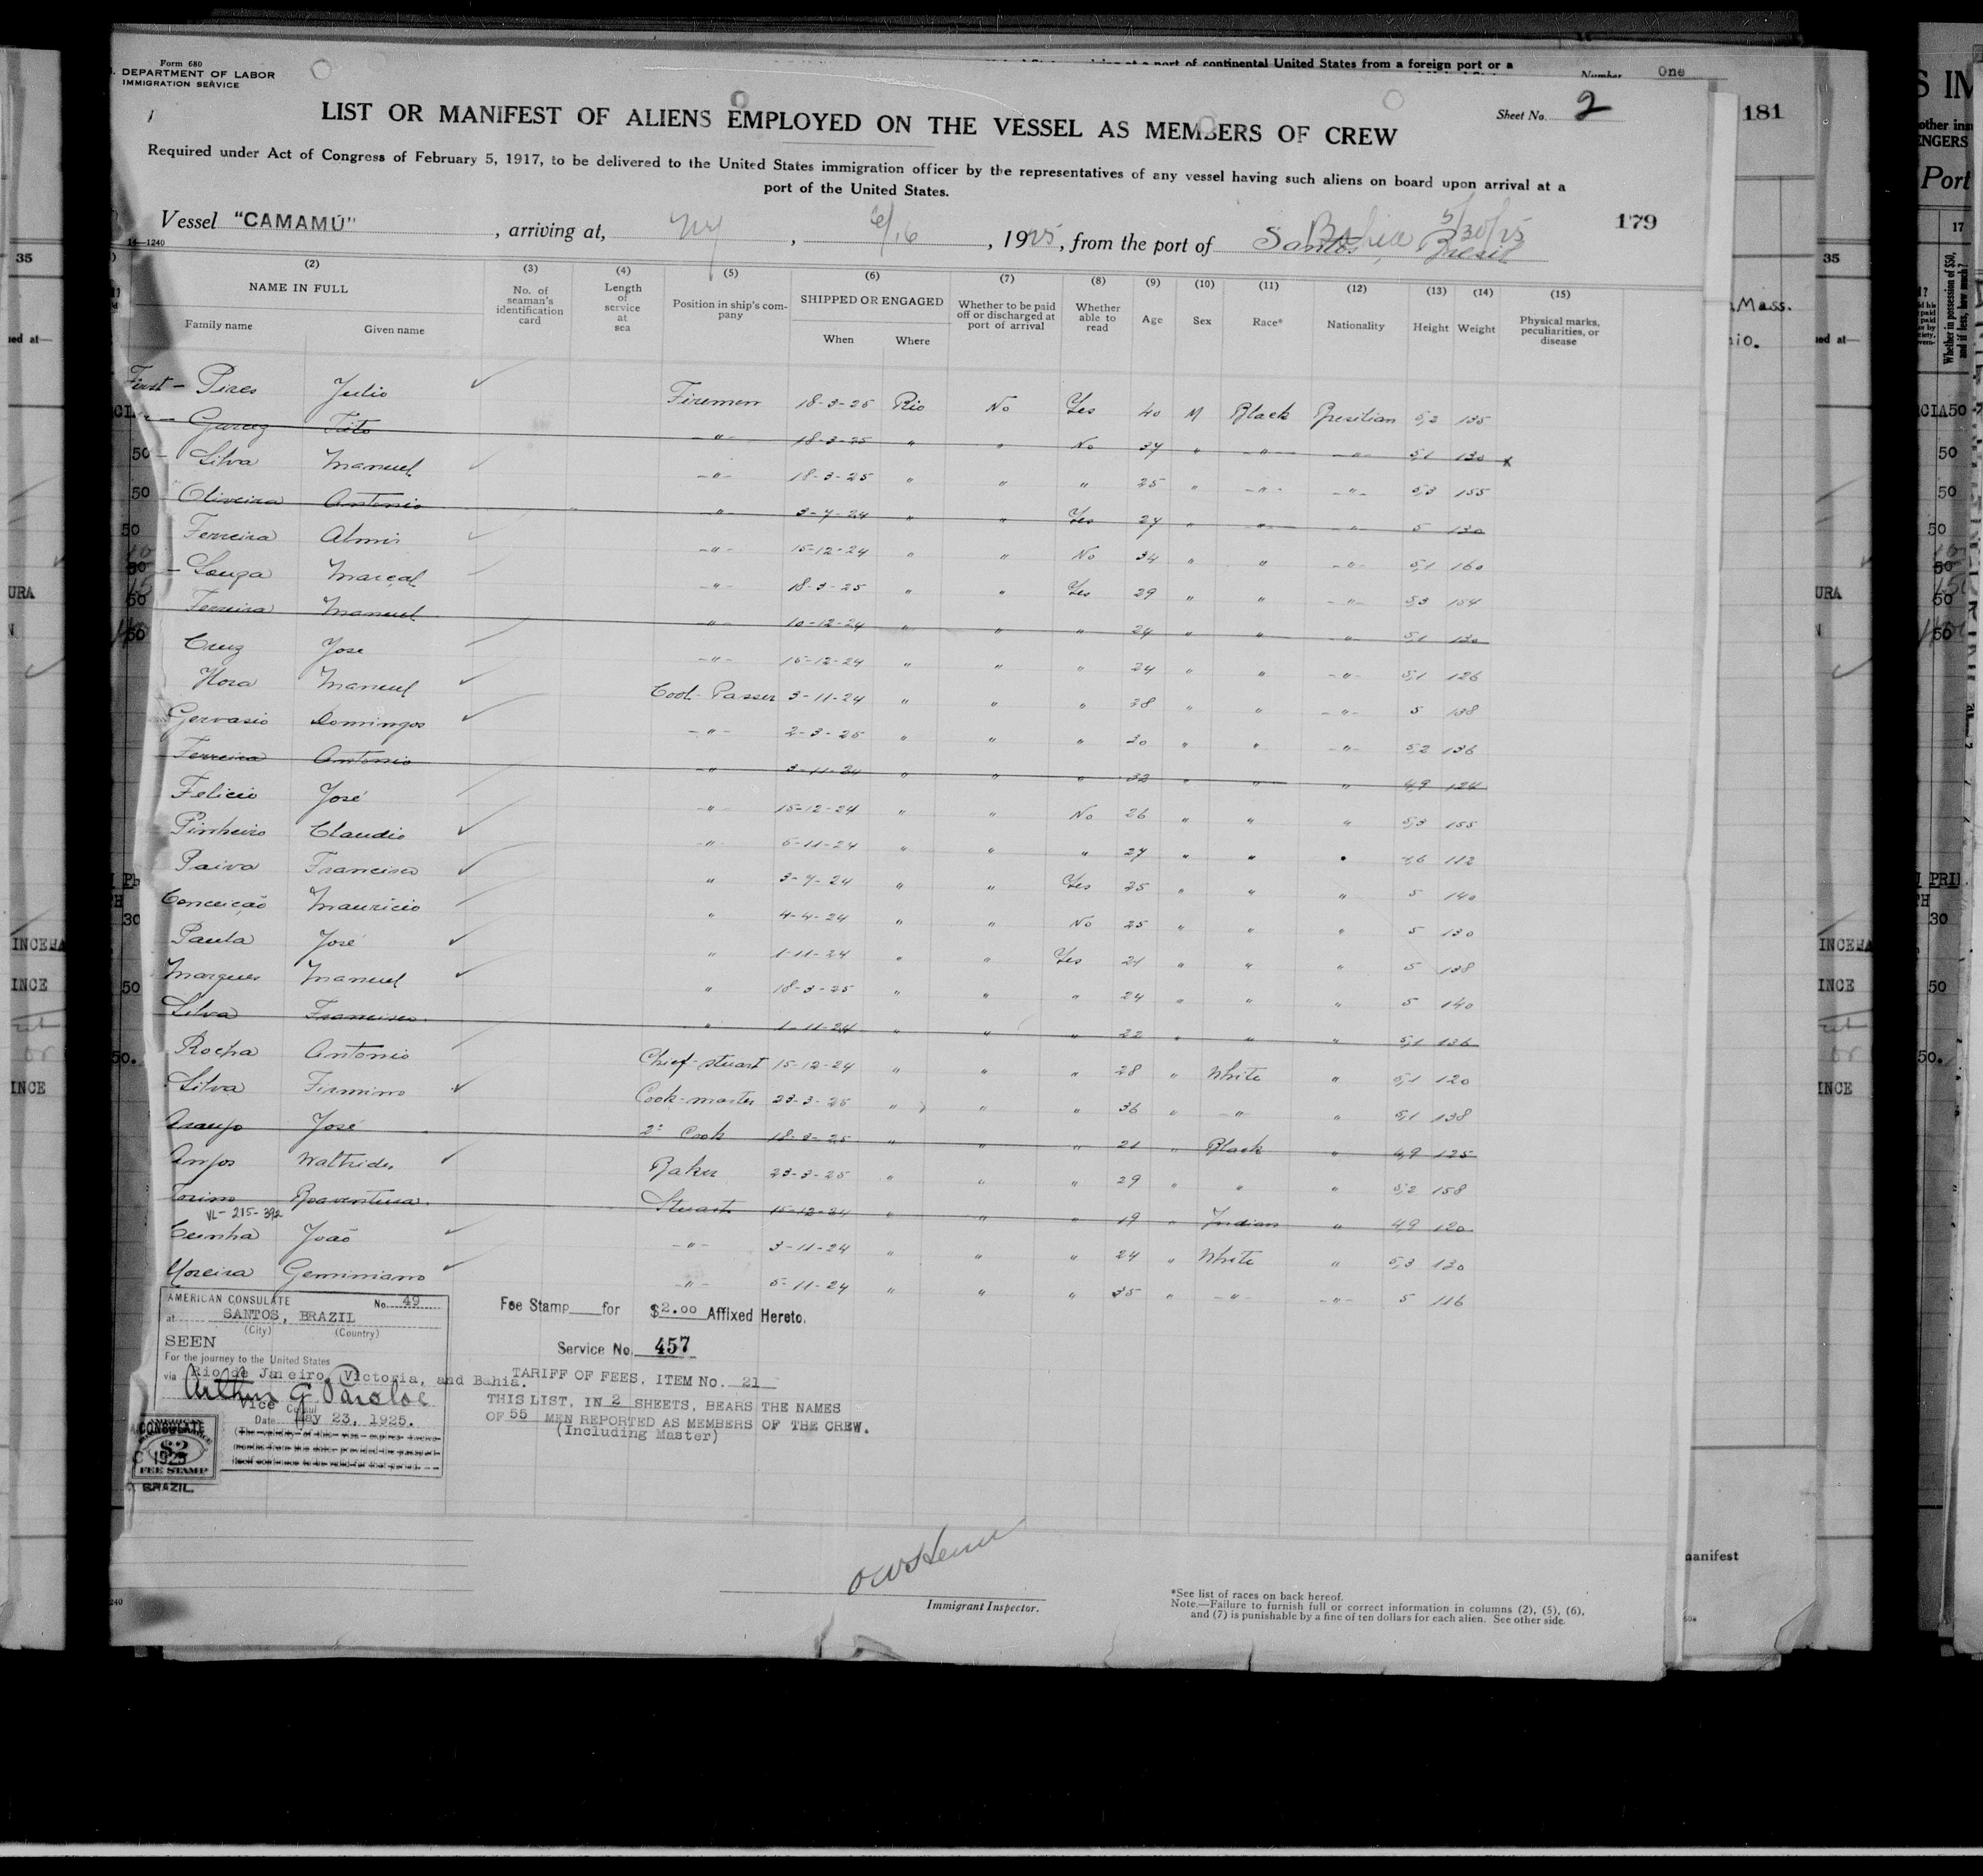 Form 680
DEPARTMENT OF LABOR
IMMIGRATION SERVICE
port of continental United States from a foreign port or a
Number One
LIST OR MANIFEST OF ALIENS EMPLOYED ON THE VESSEL AS MEMBERS OF CREW
Sheet No. 2
181
Required under Act of Congress of February 5, 1917, to be delivered to the United States immigration officer by the representatives of any vessel having such aliens on board upon arrival at a
port of the United States.
Vessel "CAMAMÚ", arriving at, NY, 6/16, 1925, from the port of Santos, Bresil Bahia 5/30/25
179
14—1240
(2) (3) (4) (5) (6) (7) (8) (9) (10) (11) (12) (13) (14) (15)
NAME IN FULL
Family name Given name
No. of seaman's identification card
Length of service at sea
Position in ship's company
SHIPPED OR ENGAGED
When Where
Whether to be paid off or discharged at port of arrival
Whether able to read
Age Sex Race* Nationality Height Weight
Physical marks, peculiarities, or disease
First - Pires Julio Firemen 18-3-25 Rio No Yes 40 M Black Bresilian 5,2 135
Garcez Tito -"- 18-3-25 " " No 37 " -"- -"- 5,1 130 x
Silva Manuel -"- 18-3-25 " " " 25 " -"- -"- 5,3 155
Oliveira Antonio -"- 3-7-24 " " Yes 27 " -"- -"- 5 130
Ferreira Almir -"- 15-12-24 " " No 34 " " -"- 5,1 160
Souza Marçal -"- 18-3-25 " " Yes 29 " " -"- 5,3 154
Ferreira Manuel -"- 10-12-24 " " " 24 " " -"- 5,1 130
Cruz Jose -"- 15-12-24 " " " 24 " " -"- 5,1 126
Hora Manuel Cool-Passer 3-11-24 " " " 38 " " -"- 5 138
Gervasio Domingos -"- 2-3-25 " " " 30 " " -"- 5,2 136
Ferreira Antonio -"- 3-11-24 " " " 32 " " " 4,9 124
Felicio José -"- 15-12-24 " " No 26 " " " 5,3 155
Pinheiro Claudio -"- 5-11-24 " " " 27 " " " 4,6 112
Paiva Francisco " 3-7-24 " " Yes 25 " " " 5 140
Conceição Mauricio " 4-4-24 " " No 25 " " " 5 130
Paula José " 1-11-24 " " Yes 21 " " " 5 138
Marques Manuel " 18-3-25 " " " 24 " " " 5 140
Silva Francisco " 1-11-24 " " " 22 " " " 5,1 136
Rocha Antonio Chief-stuart 15-12-24 " " " 28 " White " 5,1 120
Silva Firmino Cook-master 23-3-25 " " " 36 " -"- " 5,1 138
Araujo José 2º Cook 18-3-25 " " " 21 " Black " 4,9 125
Anjos Wathides Baker 23-3-25 " " " 29 " " " 5,2 158
Boaventura Stuart 15-12-24 " " " 19 " Indian " 4,9 120
VL-215-392
Cunha João -"- 3-11-24 " " " 24 " White " 5,3 130
Moreira Geminiano -"- 5-11-24 " " " 35 " -"- -"- 5 116
AMERICAN CONSULATE No. 49
at SANTOS, BRAZIL
(City) (Country)
SEEN
For the journey to the United States
via Rio de Janeiro, Victoria, and Bahia.
Vice Consul
Date May 23, 1925.
(The validity of this visa expires twelve
months from this date, provided the passport
itself continues to be valid for that period.
CONSULATE
$2
1925
FEE STAMP
BRAZIL.
Fee Stamp for $2.00 Affixed Hereto.
Service No. 457
TARIFF OF FEES, ITEM No. 21
THIS LIST, IN 2 SHEETS, BEARS THE NAMES
OF 55 MEN REPORTED AS MEMBERS OF THE CREW.
(Including Master)
Immigrant Inspector.
*See list of races on back hereof.
Note.—Failure to furnish full or correct information in columns (2), (5), (6),
and (7) is punishable by a fine of ten dollars for each alien. See other side.
manifest